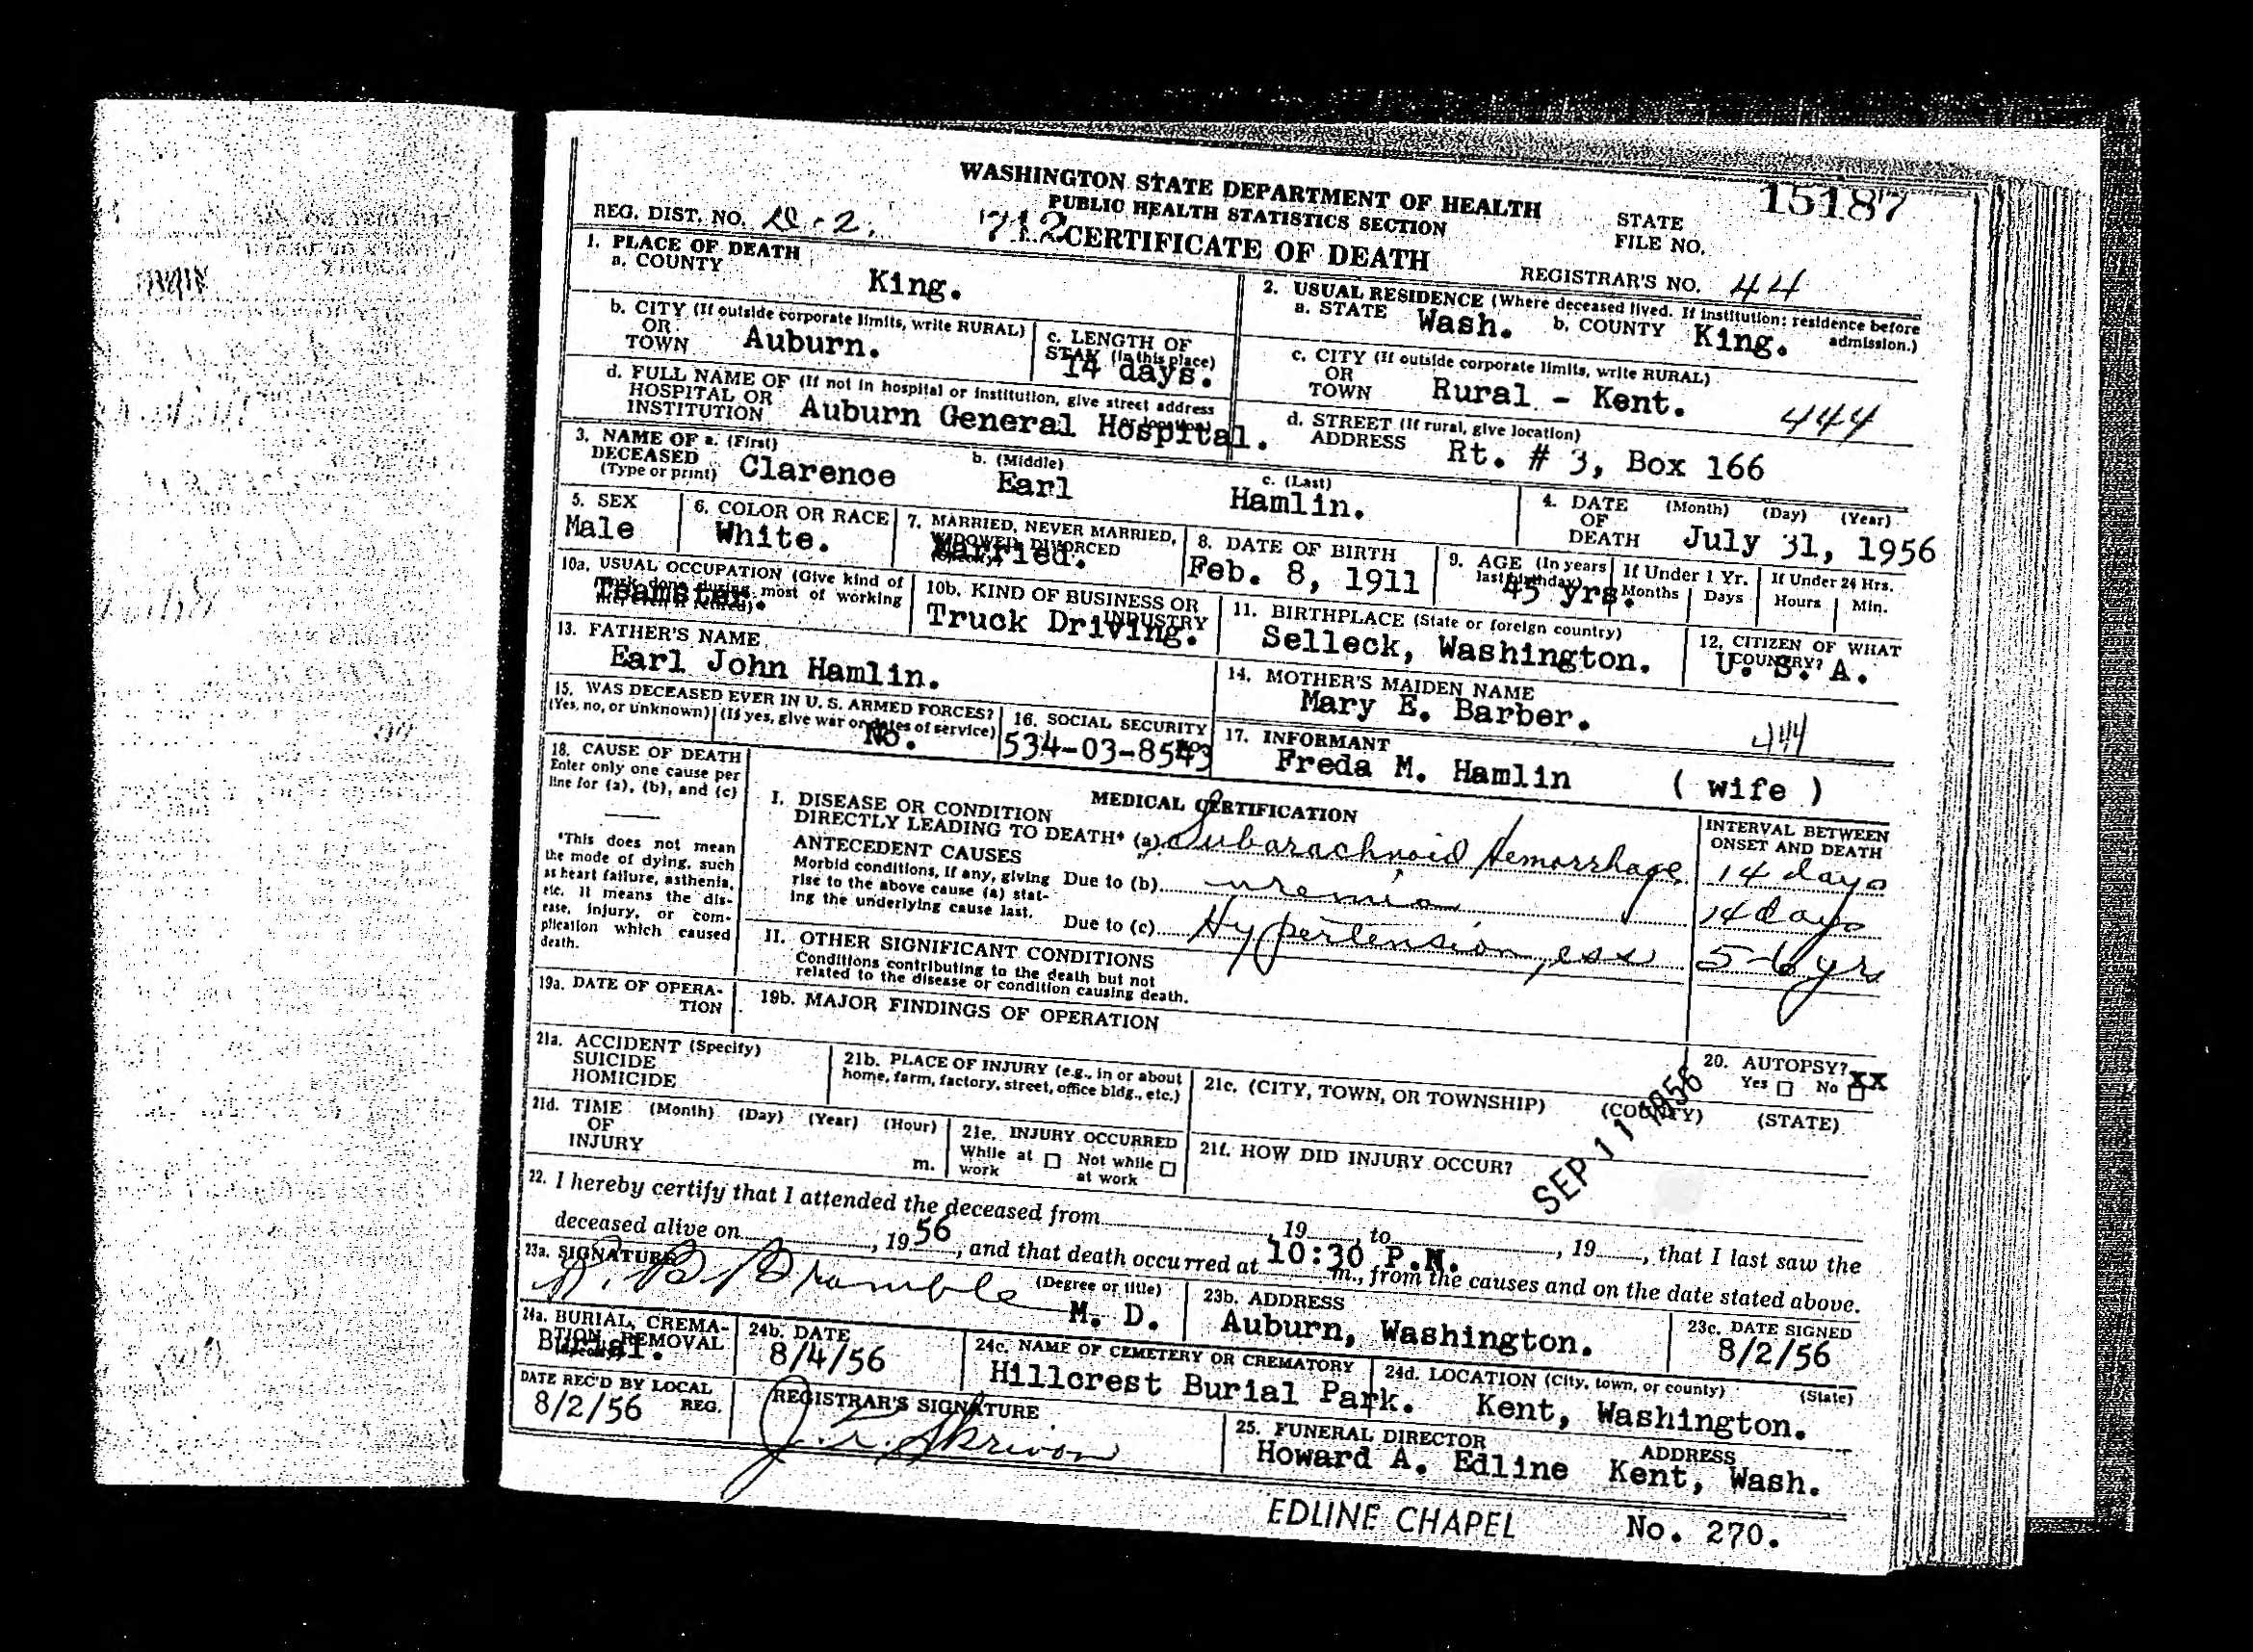 WASHINGTON STATE DEPARTMENT OF HEALTH
PUBLIC HEALTH STATISTICS SECTION
CERTIFICATE OF DEATH
712
STATE FILE NO. 15187
REG. DIST. NO.
REGISTRAR'S NO. 44
1. PLACE OF DEATH
a. COUNTY
King.
b. CITY (If outside corporate limits, write RURAL)
OR
TOWN Auburn.
c. LENGTH OF
STAY (in this place)
14 days.
d. FULL NAME OF (If not in hospital or institution, give street address
HOSPITAL OR
INSTITUTION Auburn General Hospital.
2. USUAL RESIDENCE (Where deceased lived. If institution: residence before
admission.)
a. STATE Wash. b. COUNTY King.
c. CITY (If outside corporate limits, write RURAL)
OR
TOWN Rural - Kent. 444
d. STREET (If rural, give location)
ADDRESS Rt. # 3, Box 166
3. NAME OF DECEASED (Type or print)
a. (First) Clarence
b. (Middle) Earl
c. (Last) Hamlin.
4. DATE OF DEATH (Month) (Day) (Year)
July 31, 1956
5. SEX
Male
6. COLOR OR RACE
White.
7. MARRIED, NEVER MARRIED,
WIDOWED, DIVORCED
Married.
8. DATE OF BIRTH
Feb. 8, 1911
9. AGE (In years
last birthday)
45 yrs.
If Under 1 Yr.
Months Days
If Under 24 Hrs.
Hours Min.
10a. USUAL OCCUPATION (Give kind of
work done during most of working
Teamster.
10b. KIND OF BUSINESS OR
INDUSTRY
Truck Driving.
11. BIRTHPLACE (State or foreign country)
Selleck, Washington.
12. CITIZEN OF WHAT
COUNTRY?
U. S. A.
13. FATHER'S NAME
Earl John Hamlin.
14. MOTHER'S MAIDEN NAME
Mary E. Barber.
15. WAS DECEASED EVER IN U. S. ARMED FORCES?
(Yes, no, or unknown) (If yes, give war or dates of service)
No.
16. SOCIAL SECURITY
534-03-8543
17. INFORMANT
Freda M. Hamlin ( wife )
18. CAUSE OF DEATH
Enter only one cause per
line for (a), (b), and (c)
*This does not mean
the mode of dying, such
as heart failure, asthenia,
etc. It means the dis-
ease, injury, or com-
plication which caused
death.
MEDICAL CERTIFICATION
I. DISEASE OR CONDITION
DIRECTLY LEADING TO DEATH* (a) Subarachnoid Hemorrhage
ANTECEDENT CAUSES
Morbid conditions, if any, giving
rise to the above cause (a) stat-
ing the underlying cause last.
Due to (b) uremia
Due to (c) Hypertension, ess
INTERVAL BETWEEN
ONSET AND DEATH
14 days
14 days
5-6 yrs
II. OTHER SIGNIFICANT CONDITIONS
Conditions contributing to the death but not
related to the disease or condition causing death.
19a. DATE OF OPERA-
TION
19b. MAJOR FINDINGS OF OPERATION
20. AUTOPSY?
Yes No XX
21a. ACCIDENT (Specify)
SUICIDE
HOMICIDE
21b. PLACE OF INJURY (e.g., in or about
home, farm, factory, street, office bldg., etc.)
21c. (CITY, TOWN, OR TOWNSHIP) (COUNTY) (STATE)
SEP 11 1956
21d. TIME (Month) (Day) (Year) (Hour)
OF
INJURY m.
21e. INJURY OCCURRED
While at work Not while at work
21f. HOW DID INJURY OCCUR?
22. I hereby certify that I attended the deceased from , 19 , to , 19 , that I last saw the
deceased alive on , 1956, and that death occurred at 10:30 P.M. m., from the causes and on the date stated above.
23a. SIGNATURE (Degree or title)
Bramble M. D.
23b. ADDRESS
Auburn, Washington.
23c. DATE SIGNED
8/2/56
24a. BURIAL, CREMA-
TION, REMOVAL
Burial.
24b. DATE
8/4/56
24c. NAME OF CEMETERY OR CREMATORY
Hillcrest Burial Park.
24d. LOCATION (City, town, or county) (State)
Kent, Washington.
DATE REC'D BY LOCAL
REG.
8/2/56
REGISTRAR'S SIGNATURE
25. FUNERAL DIRECTOR ADDRESS
Howard A. Edline Kent, Wash.
EDLINE CHAPEL No. 270.